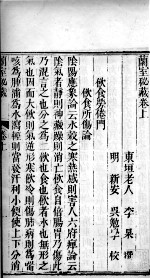 蘭室秘藏卷上
東垣老人 李杲 撰
明 新安 吳勉學 校
飲食勞倦門
飲食所傷論
陰陽應象論云水穀之寒熱感則害人六腑痺論云
陰氣者靜則神藏躁則消亡飲食自倍腸胃乃傷此
乃混言之也分之為二飲也食也飲者水也無形之
氣也因而大飲則氣逆形寒飲冷則傷肺病則為喘
咳為腫滿為水瀉輕則當發汗利小便使上下分消
蘭室秘藏